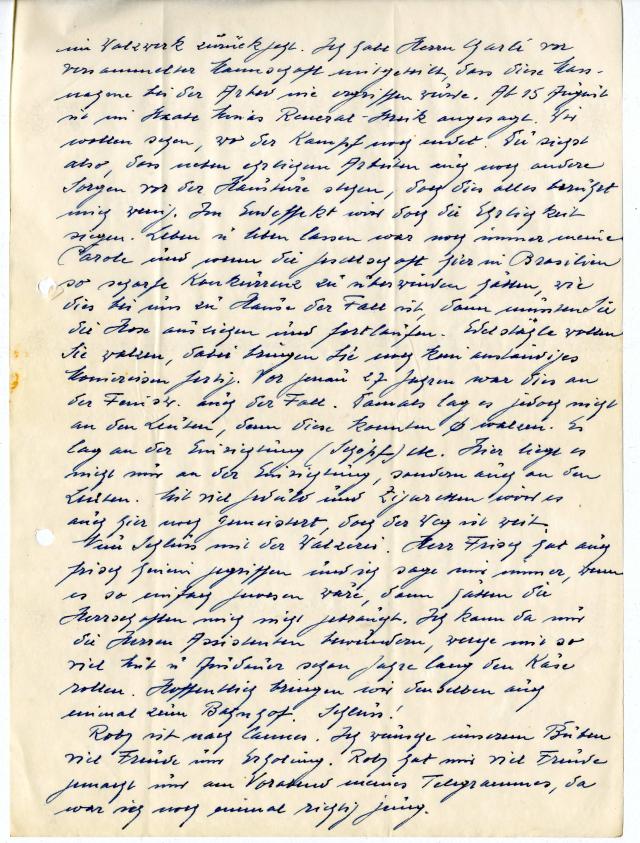 im Walzwerk zurückjagt. Ich habe Herrn Charlé vor
versammelter Mannschaft mitgeteilt, dass diese Mass-
nahme bei der Arbed nie ergriffen würde. Ab 15 August
ist im Staate Minas General-Streik angesagt. Wir
wollen sehen, wo der Kampf noch endet. Du siehst
also, dass neben ehrlichem Arbeiten auch noch andere
Sorgen vor der Haustüre stehen, doch dies alles berührt
mich wenig. Im Endeffekt wird doch die Ehrlichkeit
siegen. Leben u leben lassen war noch immer meine
Parole und wenn die Gesellschaft hier in Brasilien
so scharfe Konkurrenz zu überwinden hätten, wie
dies bei uns zu Hause der Fall ist, dann müssten Sie
die Hose ausziehen und fortlaufen. Edelstähle wollen
Sie walzen, dabei bringen Sie noch kein anständiges
fertig. Vor genau 27 Jahren war dies an
der auch der Fall. Damals lag es jedoch nicht
an den Leuten, denn diese konnten walzen. Es
lag an der Einrichtung (Schöpf) etc. Hier liegt es
nicht nur an der Einrichtung, sondern auch an den
Leuten. Mit viel Geduld und Zigaretten wird es
auch hier noch gemeistert, doch der Weg ist weit.
Nun Schluss mit der Walzerei. Herr Frisch hat auch
frisch hinein gegriffen und ich sage mir immer, wenn
es so einfach gewesen wäre, dann hätten die
Herrschaften mich nicht gebraucht. Ich kann da nur
die Herren Assistenten bewundern, welche mit so
viel Mut u Ausdauer schon jahre lang den Käse
rollen. Hoffentlich bringen wir denselben auch
einmal zum Bahnhof. Schluss!
Roby ist nach Cannes. Ich wünsche unserem Buben
viel Freude und Erholung. Roby hat mir viel Freude
gemacht und am Vorabend meines Telegrammes, da
war ich noch einmal richtig jung.